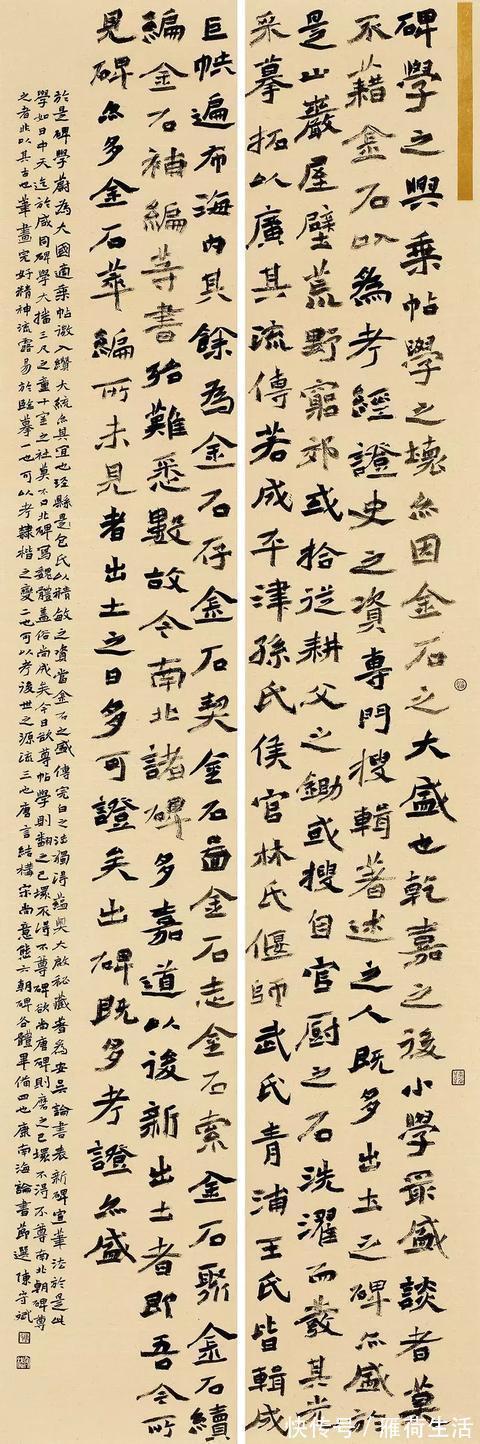 碑學之興乘帖學之壞亦因金石之大盛也乾嘉之後小學最盛談者莫
不藉金石以為考經證史之資專門搜輯著述之人既多出土之碑亦盛於
是山巖屋壁荒野窮郊或拾從耕父之鋤或搜自官廚之石洗濯而發其光
采摹拓以廣其流傳若成平津孫氏侯官林氏偃師武氏青浦王氏皆輯成
巨帙遍布海內其餘為金石存金石契金石圖金石志金石索金石聚金石續
編金石補編等書殆難悉數故今南北諸碑多嘉道以後新出土者即吾今所
見碑亦多金石萃編所未見者出土之日多可證矣出碑既多考證亦盛
於是碑學蔚為大國適乘帖微入纘大統亦其宜也涇縣是包氏以精敏之資當金石之盛傳完白之法獨得蘊奧大啟秘藏著為安吳論書表新碑宣筆法於是此
學如日中天迄於咸同碑學大播三尺之童十室之社莫不口北碑寫魏體蓋俗尚成矣今日欲尊帖學則翻之已壞不得不尊碑欲尚唐碑則磨之已壞不得不尊南北朝碑尊
之者非以其古也筆畫完好精神流露易於臨摹一也可以考隸楷之變二也可以考後世之源流三也唐言結構宋尚意態六朝碑各體畢備四也康南海論書節選陳守斌
快传号/雁荷生活